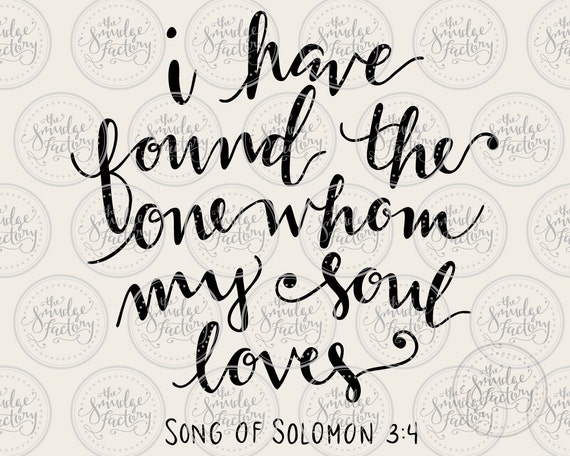 i have
found the
one whom
my soul
loves
SONG OF SOLOMON 3:4
the Smudge Factory